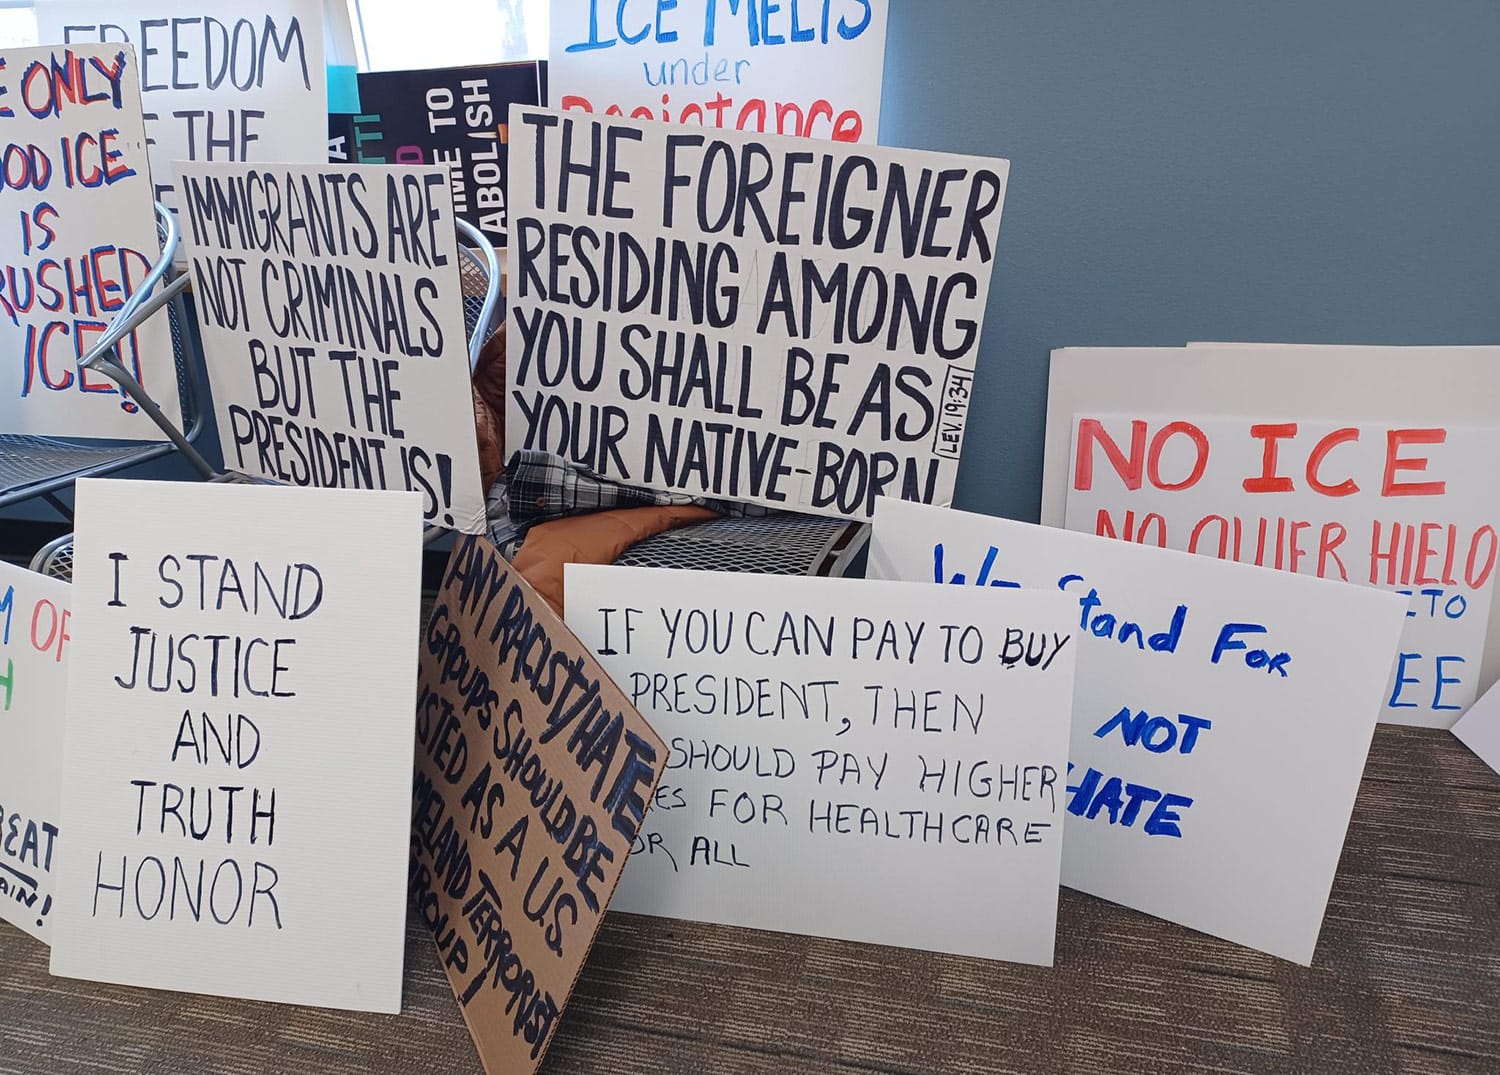 FREEDOM
THE
ONLY
ICE
IS
ICE!!
TIME TO
ABOLISH
ICE MELTS
under
Resistance
IMMIGRANTS ARE
NOT CRIMINALS
BUT THE
PRESIDENT IS!
THE FOREIGNER
RESIDING AMONG
YOU SHALL BE AS
YOUR NATIVE-BORN
LEV. 19:34
NO ICE
NO QUIER HIELO
ETO
EE
OF
I STAND
JUSTICE
AND
TRUTH
HONOR
ANY RACIST/HATE
GROUPS SHOULD BE
LISTED AS A U.S.
HOMELAND TERRORIST
GROUP!
IF YOU CAN PAY TO BUY
PRESIDENT, THEN
SHOULD PAY HIGHER
ES FOR HEALTHCARE
FOR ALL
We Stand For
NOT
HATE